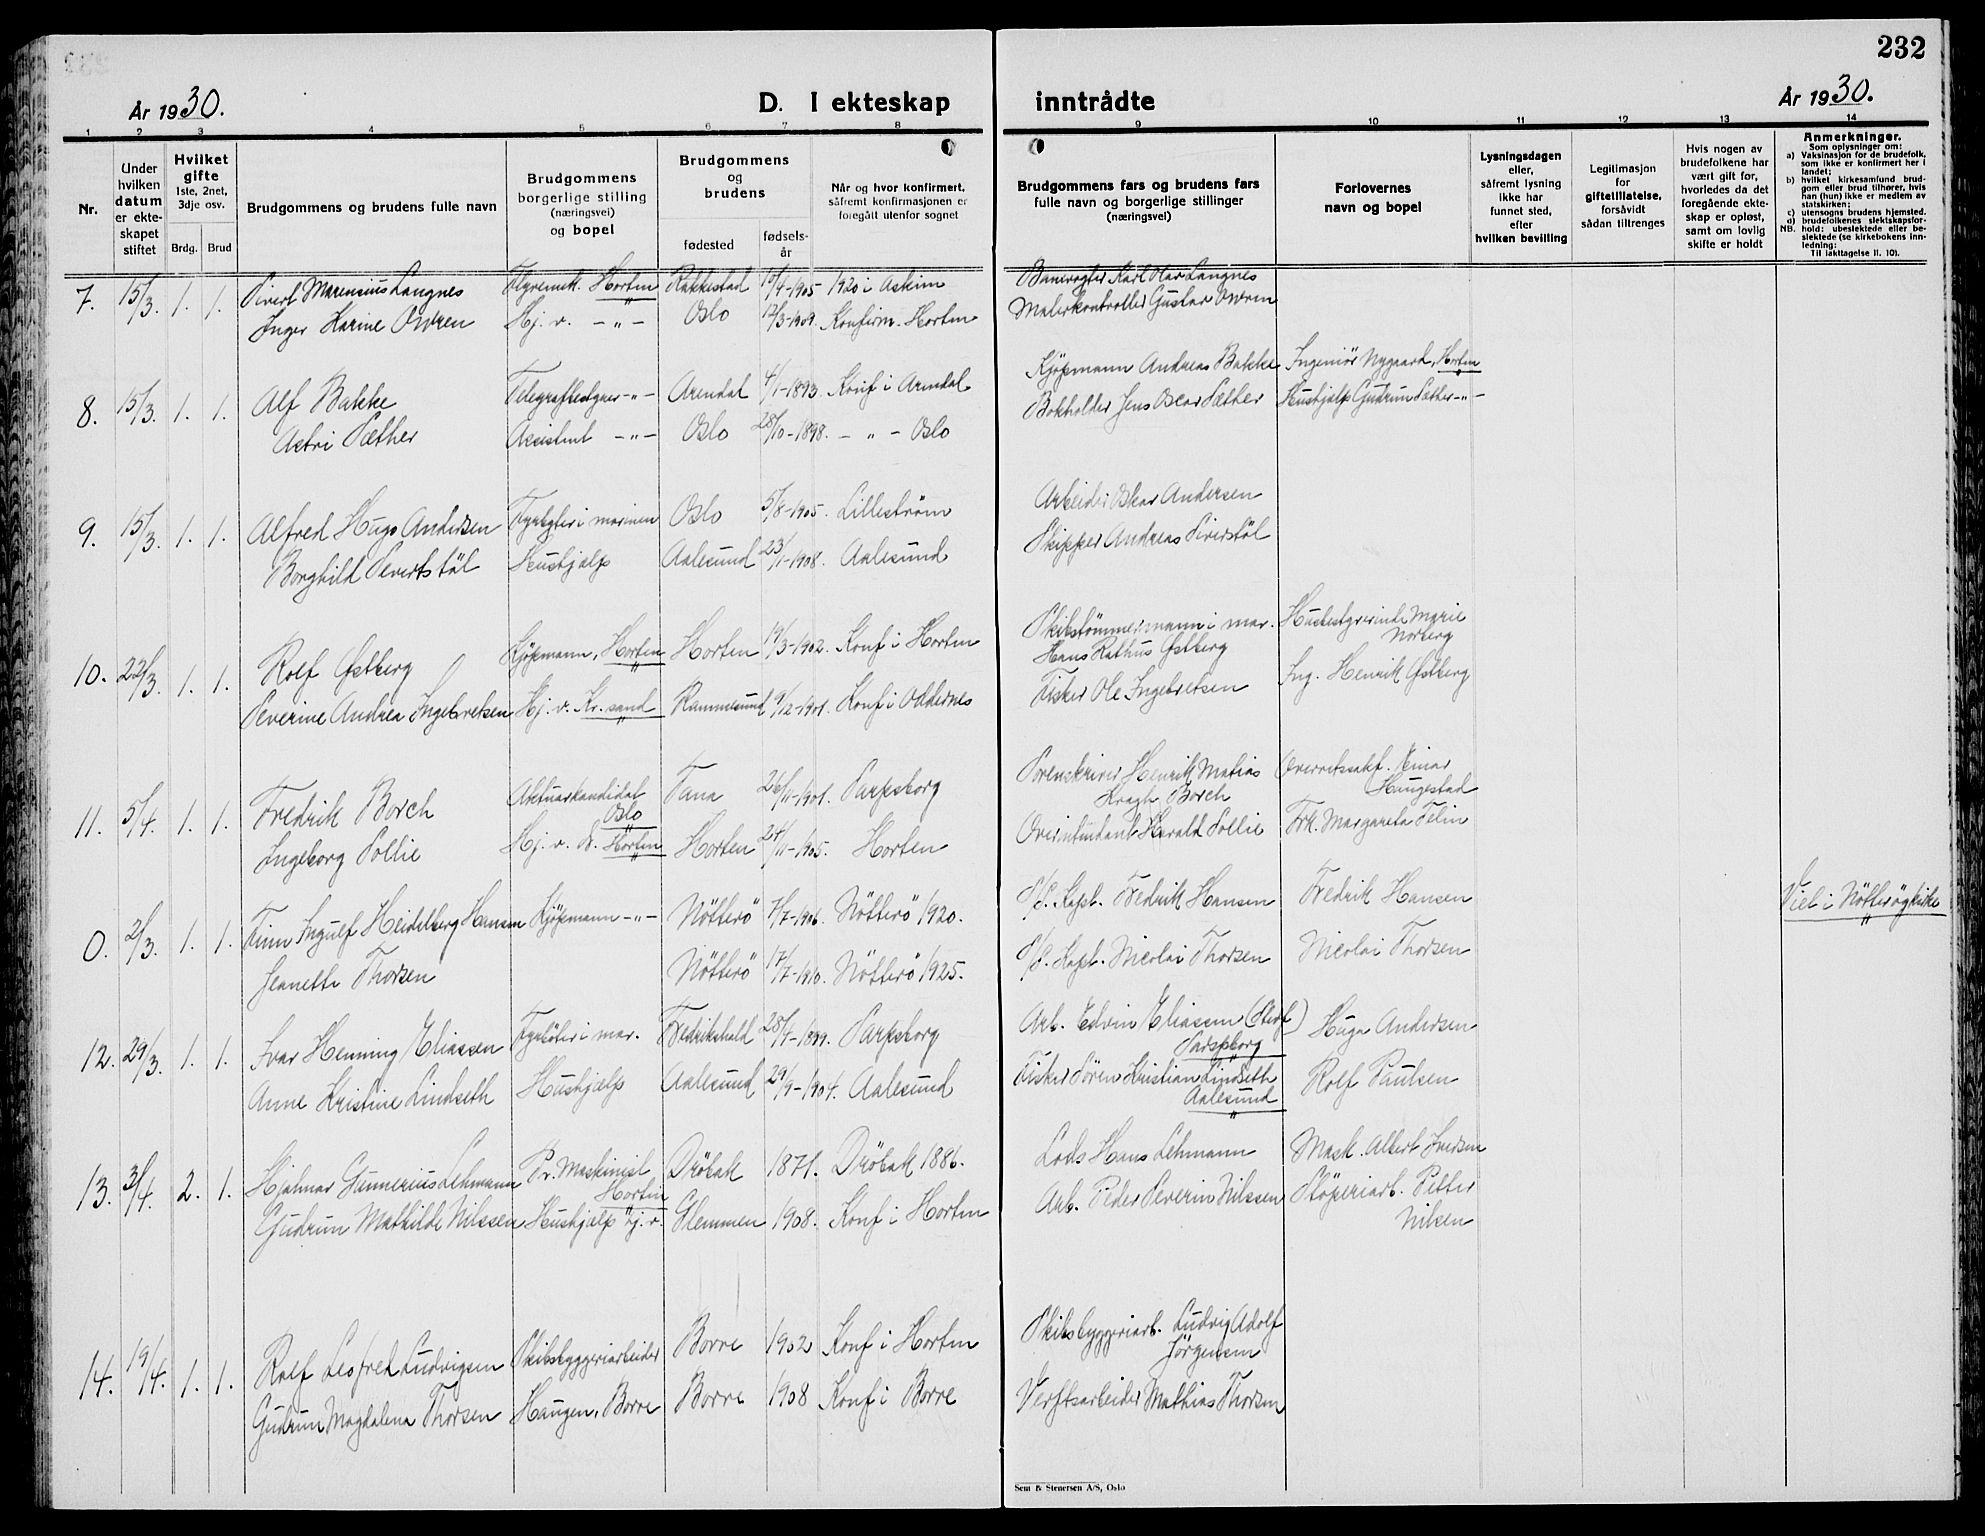 232
År 1930.
D. I ekteskap inntrådte
År 1930.
1 2 3 4 5 6 7 8 9 10 11 12 13 14
Nr.
Under hvilken datum er ekteskapet stiftet
Hvilket gifte
1ste, 2net, 3dje osv.
Brdg. Brud
Brudgommens og brudens fulle navn
Brudgommens borgerlige stilling (næringsvei) og bopel
Brudgommens og brudens
fødested
fødsels-år
Når og hvor konfirmert, såfremt konfirmasjonen er foregått utenfor sognet
Brudgommens fars og brudens fars fulle navn og borgerlige stillinger (næringsvei)
Forlovernes navn og bopel
Lysningsdagen eller, såfremt lysning ikke har funnet sted, efter hvilken bevilling
Legitimasjon for giftetillatelse, forsåvidt sådan tiltrenges
Hvis nogen av brudefolkene har vært gift før, hvorledes da det foregående ekteskap er opløst, samt om lovlig skifte er holdt
Anmerkninger.
Som oplysninger om:
a) Vaksinasjon for de brudefolk, som ikke er konfirmert her i landet;
b) hvilket kirkesamfund brudgom eller brud tilhører, hvis han (hun) ikke er medlem av statskirken;
c) utensogns brudens hjemsted.
d) brudefolkenes slektskapsforhold: ubeslektede eller beslektede (se kirkebokens innledning:
NB.
Til iakttagelse II. 10).
7. 15/3. 1. 1. Sivert Marensius Langnes Flyvemek. Horten Rakkestad 1905 1920 i Askim Banevogter Karl Olav Langnes
Inger Karine Owren Hj. v. -"- Oslo 12/3-1909. Konfirm. Horten Malerkontrollør Gustav Owren
8. 15/3. 1. 1. Alf Bakke Telegrafbestyrer -"- Arendal 4/1-1893 Konf i Arendal Kjøpmann Andreas Bakke Ingeniør Nygaard, Horten
Astri Sæther Assistent -"- Oslo 28/10-1898. -"- Oslo Bokholder Jens Oscar Sæther Hushjelp Gudrun Sæther -"-
9. 15/3. 1. 1. Alfred Hugo Andersen Fyrbøter i marinen Oslo 5/8-1905. Lilleström Arbeider Oskar Andersen
Borghild Severtstöl Hushjælp Aalesund 23/1-1908. Aalesund Skipper Andreas Siverstöl
10. 22/3. 1. 1. Rolf Østberg Kjøpmann, Horten Horten 19/3-1902. Konf i Horten Skibstömmermann i mar. Hans Rathus Østberg Husbestyrerinde Marie Norberg
Severine Andrea Ingebretsen Hj. v. Kr.sand Rammesund 9/12-1901. Konf i Oddernes Fisker Ole Ingebretsen Ing. Henrik Østberg
11. 5/4. 1. 1. Fredrik Borch Aktuarkandidat Oslo Tana 26/11-1901. Sarpsborg Sorenskriver Henrik Matias Kragh Borch Overrettssakf. Einar Haugestad
Ingeborg Sollie Hj. v. Horten Horten 24/11-1905. Horten Overintendant Harald Sollie Frk. Margareta Felin
0. 2/3. 1. 1. Finn Ingulf Heidelberg Hansen Kjøpmann -"- Nötterö 7/7-1906. Nötterö 1920. S/S. Kapt. Fredrik Hansen Fredrik Hansen Viet i Nötterö kirke
Jeanette Thorsen Nötterö 17/7-1910. Nötterö 1925. S/S. Kapt. Nicolai Thorsen Nicolai Thorsen
12. 29/3. 1. 1. Ivar Henning Eliassen Fyrböter i mar. Fredrikshald 1899. Sarpsborg Arb. Edvin Eliassen Sarpsborg Hugo Andersen
Anne Kristine Lindseth Hushjælp Aalesund 29/9-1904. Aalesund Fisker Sören Kristian Lindseth Aalesund Rolf Paulsen
13. 3/4. 2. 1. Hjalmar Gunnerius Lehmann Pr. Maskinist Horten Dröbak 1871. Dröbak 1886. Lods Hans Lehmann Mask. Albert Iversen
Gudrun Mathilde Nilssen Hushjælp Hj. v. Glemmen 1908. Konf i Horten Arb. Peder Severin Nilssen Stöperiarb. Petter Nilsen
14. 19/4. 1. 1. Rolf Leofred Ludvigsen Skibsbyggeriarbeider Borre 1902 Konf i Horten Skibsbyggeriarb. Ludvig Adolf Jörgensen
Gudrun Magdalena Thorsen Haugen, Borre Borre 1908 Konf i Borre Verftsarbeider Mathias Thorsen
Sem & Stenersen A/S, Oslo